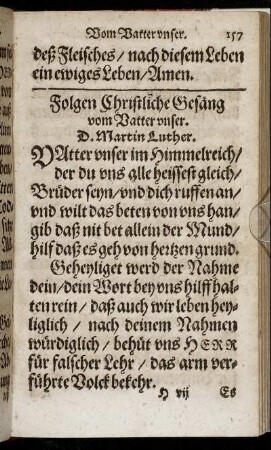 Vom Vatter vnser. 157
deß Fleisches / nach diesem Leben
ein ewiges Leben / Amen.
Folgen Christliche Gesäng
vom Vatter vnser.
D. Martin Luther.
VAtter vnser im Himmelreich /
der du vns alle heissest gleich /
Brüder seyn / vnd dich ruffen an /
vnd wilt das beten von vns han /
gib daß nit bet allein der Mund /
hilf daß es geh von hertzen grund.
Geheyliget werd der Nahme
dein / dein Wort bey vns hilff hal-
ten rein / daß auch wir leben hey-
liglich / nach deinem Nahmen
würdiglich / behüt vns HERR
für falscher Lehr / das arm ver-
führte Volck bekehr.
H vij Es